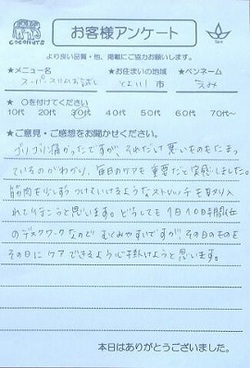 cocofuro
お客様アンケート
より良い品質・他、掲載にご協力お願いします。
★メニュー名 ★お住まいの地域 ★ペンネーム
スーパースリムお試し 市 えみ
★○を付けてください
10代 20代 30代 40代 50代 60代 70代〜
★ご意見・ご感想をお聞かせください。
ゴリゴリ痛かったですが、それだけ悪いものをためこん
でいるのがわかり、毎日のケアも重要だと実感しました。
筋肉を少しずつつけていけるようなストレッチを取り入
れて行こうと思います。どうしても1日10時間位
のデスクワークなのでむくみやすいですが、その日のものを
その日にケアできるよう心掛けようと思います。
本日はありがとうございました。